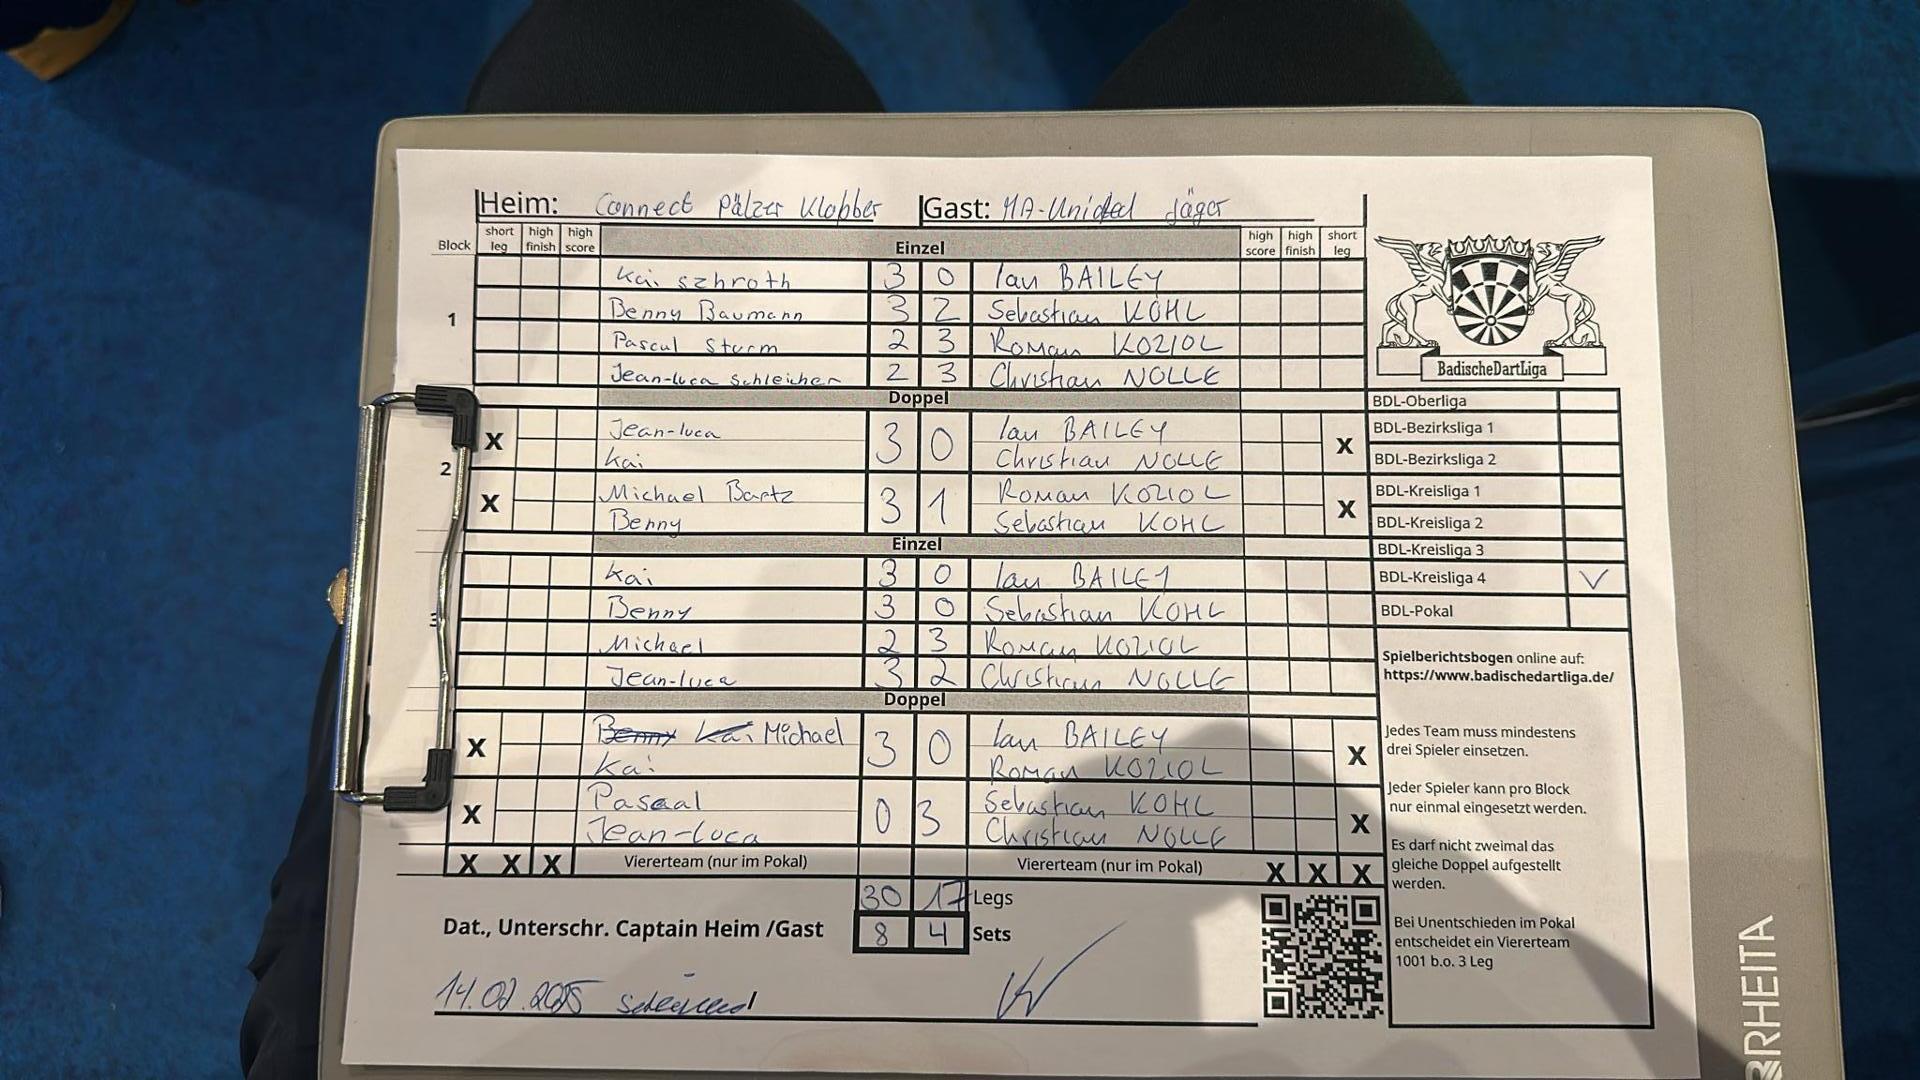 Heim: Connect Pälzer Klopber Gast: MA-United Jäger
Block short leg high finish high score Einzel high score high finish short leg
1
Kai szhroth 3 0 Ian BAILEY
Benny Baumann 3 2 Sebastian KOHL
Pascal Sturm 2 3 Roman KOZIOL
Jean-luca Schleicher 2 3 Christian NOLLE
Doppel
2
X Jean-luca 3 0 Ian BAILEY X
Kai Christian NOLLE
X Michael Bartz 3 1 Roman KOZIOL X
Benny Sebastian KOHL
Einzel
3
Kai 3 0 Ian BAILEY
Benny 3 0 Sebastian KOHL
Michael 2 3 Roman KOZIOL
Jean-luca 3 2 Christian NOLLE
Doppel
X Benny Kai Michael 3 0 Ian BAILEY X
Kai Roman KOZIOL
X Pascal 0 3 Sebastian KOHL X
Jean-Luca Christian NOLLE
X X X Viererteam (nur im Pokal) Viererteam (nur im Pokal) X X X
30 17 Legs
Dat., Unterschr. Captain Heim /Gast 8 4 Sets
14.02.2025
BadischeDartLiga
BDL-Oberliga
BDL-Bezirksliga 1
BDL-Bezirksliga 2
BDL-Kreisliga 1
BDL-Kreisliga 2
BDL-Kreisliga 3
BDL-Kreisliga 4 ✓
BDL-Pokal
Spielberichtsbogen online auf:
https://www.badischedartliga.de/
Jedes Team muss mindestens
drei Spieler einsetzen.
Jeder Spieler kann pro Block
nur einmal eingesetzt werden.
Es darf nicht zweimal das
gleiche Doppel aufgestellt
werden.
Bei Unentschieden im Pokal
entscheidet ein Viererteam
1001 b.o. 3 Leg
RHEITA